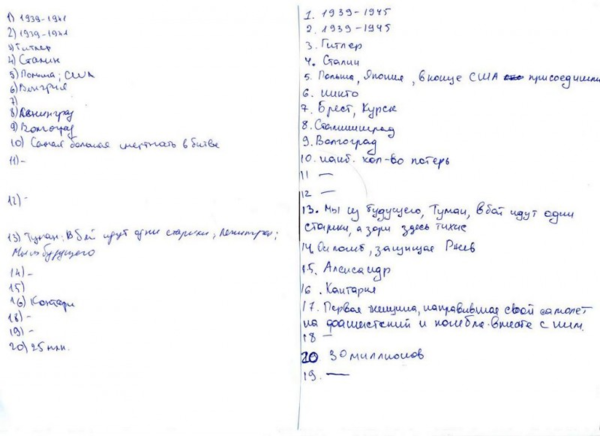 1) 1939-1941
2) 1939-1941
3) Гитлер
4) Сталин
5) Польша; США
6) Венгрия
7)
8) Ленинград
9) Волгоград
10) Самая большая смертность в битве
11) -
12) -
13) Туман; В бой идут одни старики, Ленинград;
Мы из будущего
14) -
15)
16) Кантари
18) -
19) -
20) 25 млн.
1. 1939-1945
2. 1939-1945
3. Гитлер
4. Сталин
5. Польша, Япония, в конце США присоединил
6. никто
7. Брест, Курск
8. Сталинград
9. Волгоград
10. наиб. кол-во потерь
11 —
12 —
13. Мы из будущего, Туман, В бой идут одни
старики, а зори здесь тихие
14. защищая Ржев
15. Александр
16. Кантария
17. Первая женщина, направившая свой самолет
на фашистский и погибла вместе с ним
18 —
20 30 миллионов
19. —